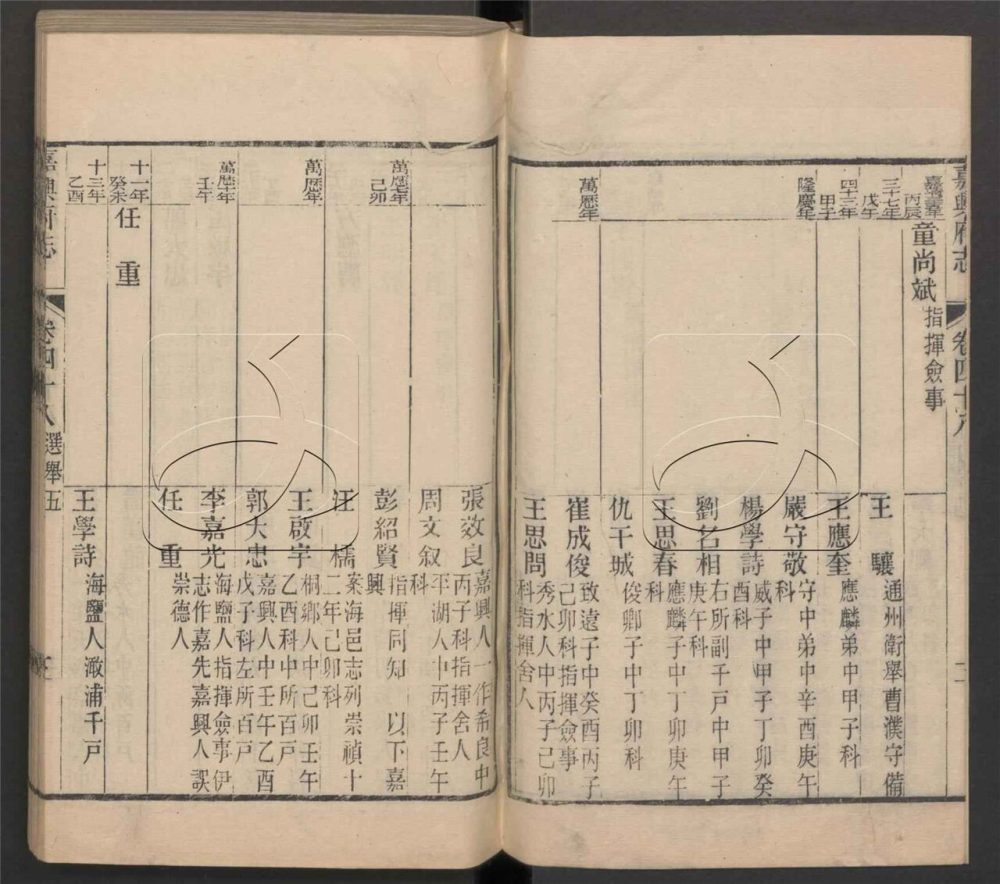 嘉興府志 卷四十八
丙辰 童尚斌 指揮僉事
三十七年戊午
四十三年甲子
隆慶年
萬歷年
王驥 通州衛舉曹濮守備
王應奎 應麟弟中甲子科
嚴守敬 守中弟中辛酉庚午科
楊學詩 威子中甲子丁卯癸酉科
劉名相 右所副千戸中甲子庚午科
王思春 應麟子中丁卯庚午科
仇干城 俊卿子中丁卯科
崔成俊 致遠子中癸酉丙子己卯科指揮僉事
王思問 秀水人中丙子己卯科指揮舍人
萬歷七年己卯
萬歷年
萬歷十年壬午
十一年癸未 任重
十三年乙酉
張效良 嘉興人一作希良中丙子科指揮舍人
周文叙 平湖人中丙子壬午科
彭紹賢 指揮同知 以下嘉興
汪檽 案海邑志列崇禎十二年己卯科
王啟宇 桐鄉人中己卯壬午乙酉科中所百戸
郭大忠 嘉興人中壬午乙酉戊子科左所百戸
李嘉光 海鹽人指揮僉事伊志作嘉先嘉興人誤
任重 崇德人
王學詩 海鹽人澉浦千戸
嘉興府志 卷四十八 選舉五